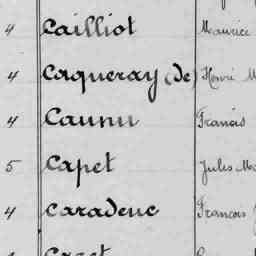 4 Cailliot Maurice
4 Caqueray (de) Henri M
4 Caunu Francis
5 Capet Jules Ma
4 Caradeuc François J